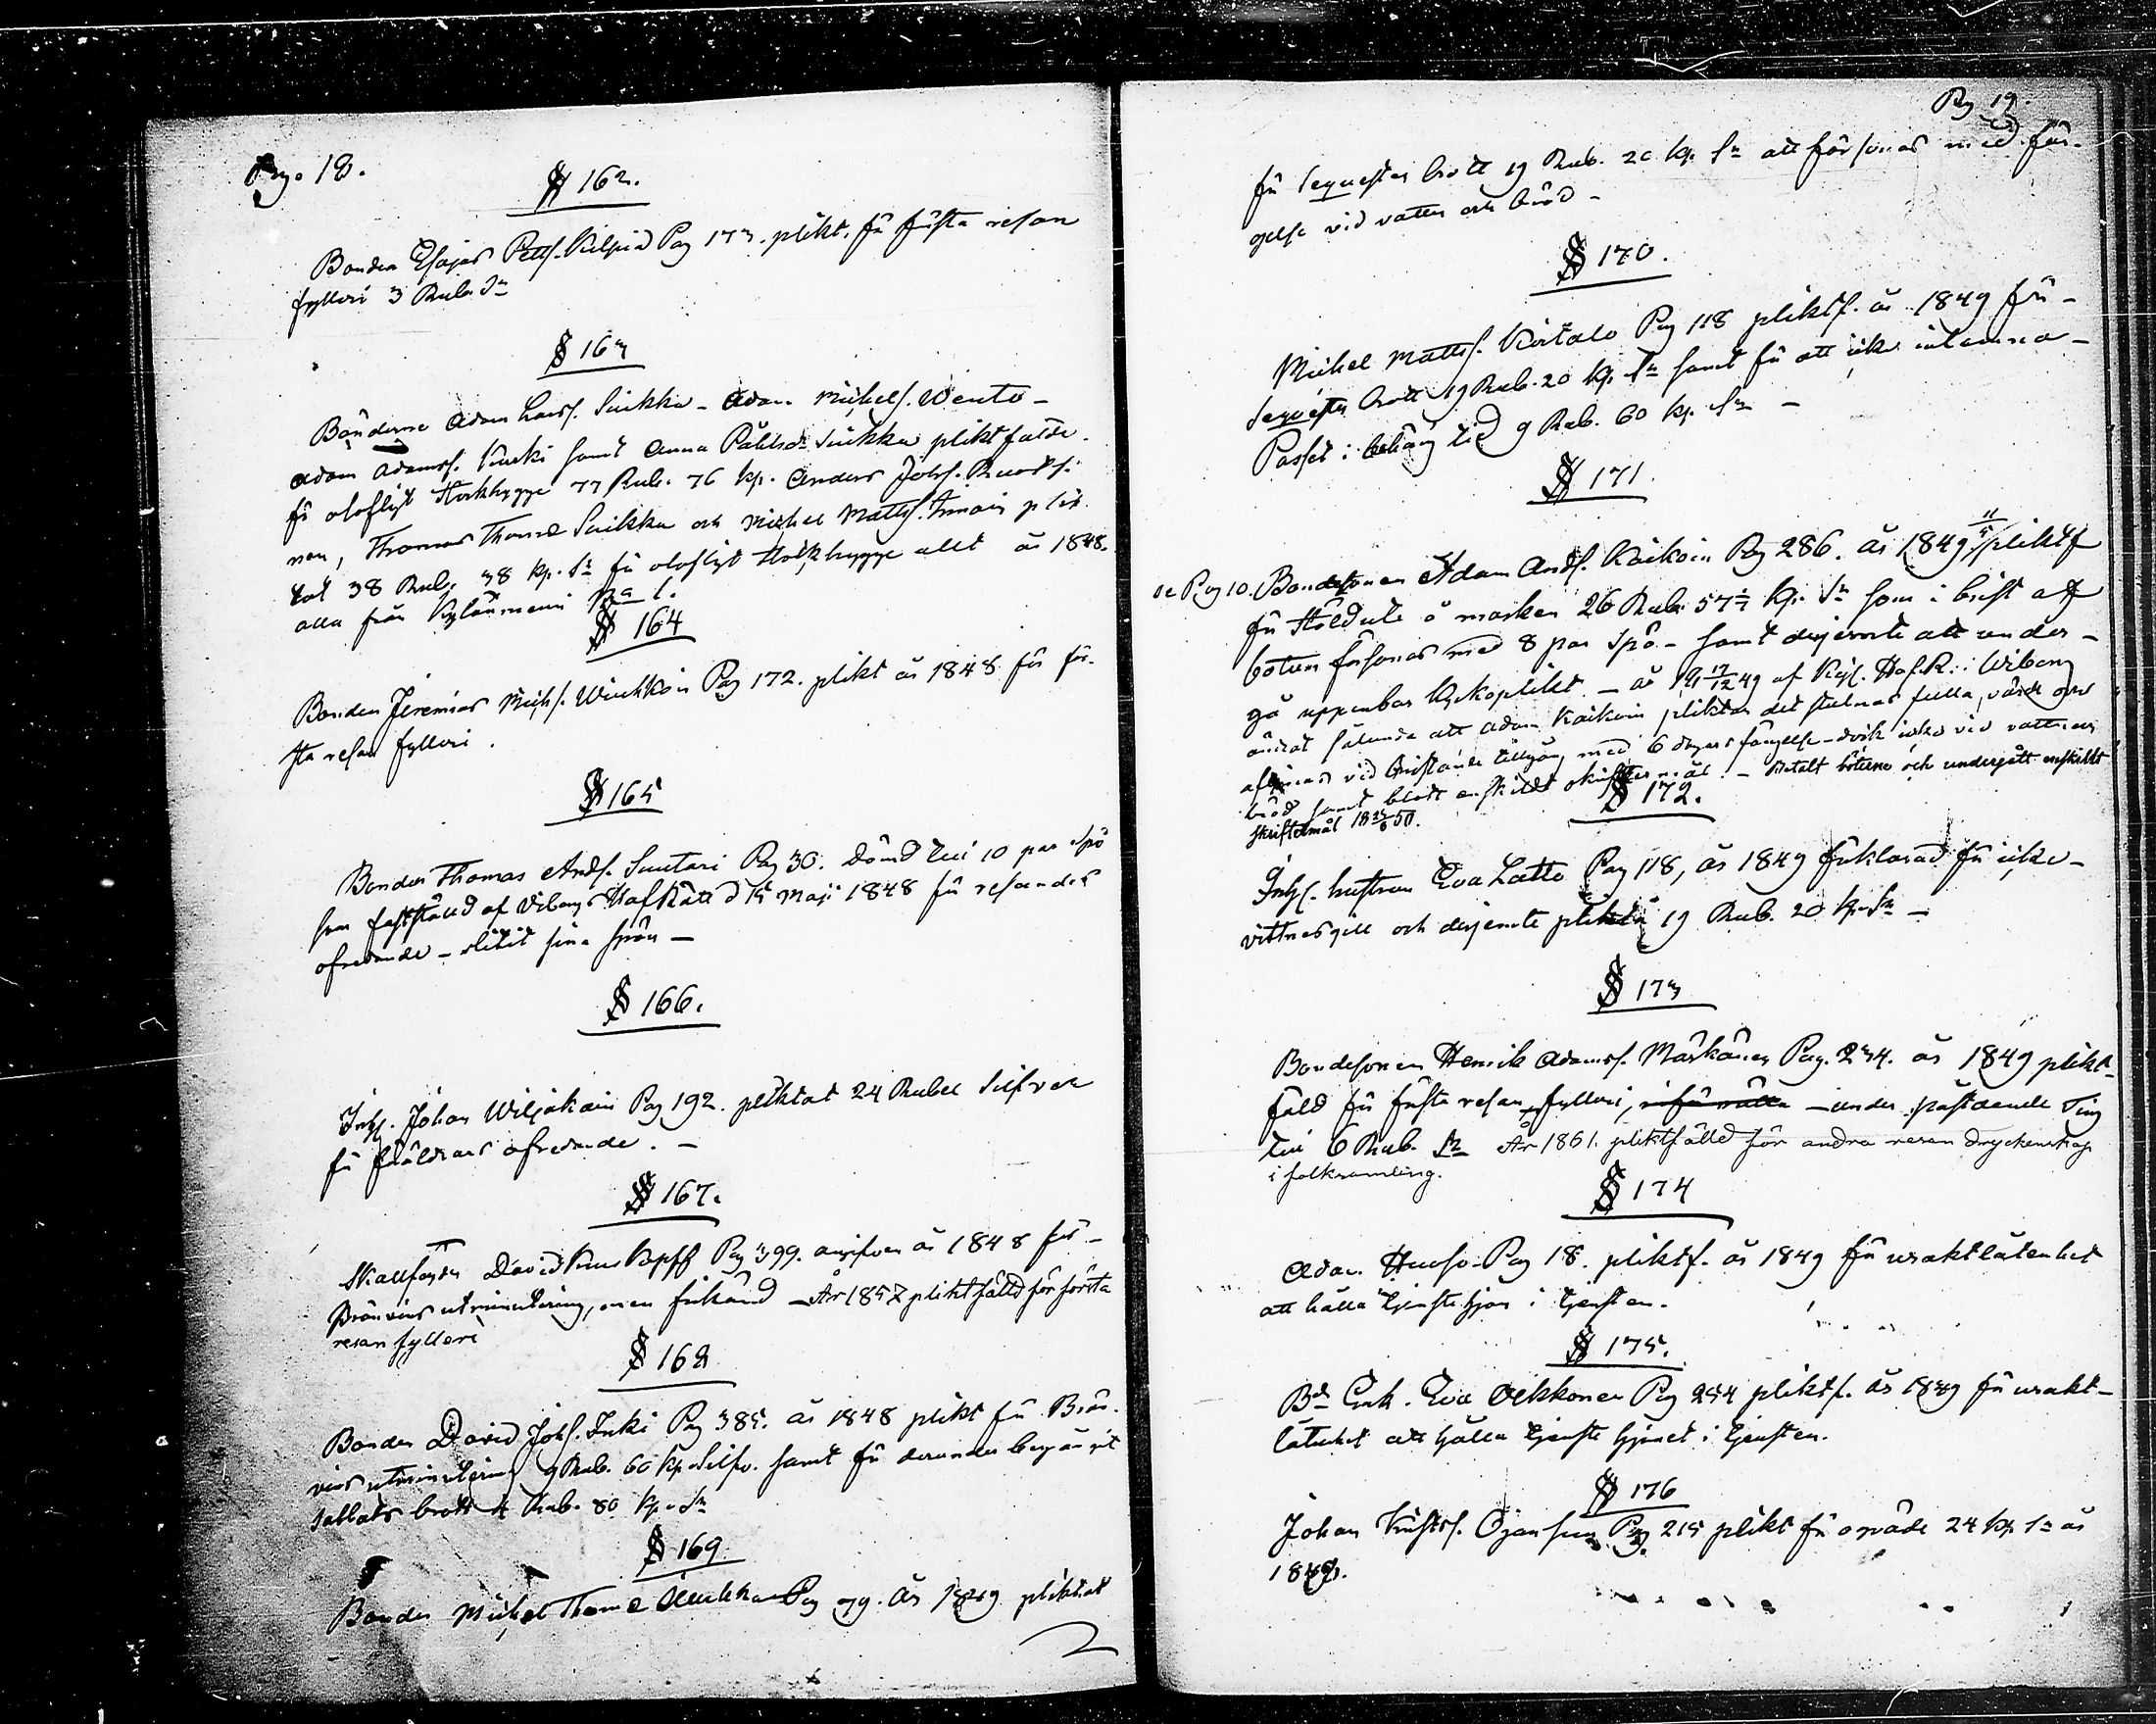 Pag. 18.
§ 162.
Bonden Esajas Petts. Kilpiä Pag 173. plikt. för första resan
fylleri 3 Rub. Sr
§ 163
Bönderne Adam Larss. Suikka - Adam Michels. Wento -
Adam Adamss. Kurki samt Anna Påhlsdr Suikka pliktfälde
för olofligt Stockhygge 77 Rub. 76 kp. Anders Johs.
nen, Thomas Thoms Suikka och Michel Matts. plik
tat 38 Rub. 38 kp. Sr för olofligt Stockhygge allt år 1848.
alla från Kylänniemi
§ 164
Bonden Jeremias Michs. Pag 172. plikt år 1848 för för-
sta resan fylleri.
§ 165
Bonden Thomas Ands. Suutari Pag 30. Dömd till 10 par Spö
som fastställd af Viborgs HofRätt d 15 Maji 1848 för
ofredande - slitit sina spön -
§ 166.
Inhs. Johan Wiljakain Pag 192. pliktat 24 Rubel Silfver
för föräldrars ofredande. -
§ 167.
Skallfogden David Pag 399. angifven år 1848 för -
Bränvins utminutering, men frikänd - År 185 pliktfälld för första
resan fylleri
§ 168
Bonden David Johs. Inki Pag 385. år 1848 plikt för Brän-
vins utminutering 9 Rub. 60 kp. Silfv. samt för derunder begånget
sabbats brott 4 Rub. 80 kp. Sr
§ 169
Bonden Michel Thoms Pag 79. År 1849 pliktat
Pag 19.
för Sequester brott 19 Rub. 20 kp. Sr att försonas med fän-
gelse vid vatten och bröd -
§ 170.
Michel Matts. Pag 118 pliktf. år 1849 för -
Sequester brott 19 Rub. 20 kp. Sr samt för att icke inlemna -
Passet i behörig tid 9 Rub. 60 kp. Sr -
§ 171.
se Pag 10. Bondesonen Adam Ands. Kaikoin Pag 286. år 1849 11/5 pliktf
för Stöld ute å marken 26 Rub. 57 1/7 kp. Sr som i brist af
boten försonas med 8 par Spö - samt dessjemte att under -
gå uppenbar kyrkoplikt. - år 18 17/12 49 af Kejs. Hof.R. i Wiborg
ändrat sålunda att Adam Kaikoin pliktar det stulnas fulla värde som
afsonas vid bristande tillgång med 6 dagars fängelse - dock icke vid vatten och
bröd samt blott enskildt skriftermål. - Betalt böterne och undergått enskildt
skriftermål 18 50.
§ 172.
Inhs. hustrun Eva Latto Pag 118, år 1849 förklarad för icke -
vittnesgill och dessjemte pliktat 19 Rub. 20 kp. Sr -
§ 173
Bondesonen Henrik Adamss. Märkänen Pag. 234. år 1849 plikt-
fäld för första resan fylleri, inför rätta - under påstående Ting
till 6 Rub. Sr År 1861. pliktfälld för andra resan dryckenskap
i folksamling.
§ 174
Adam Pag 18. pliktf. år 1849 för uraktlåtenhet
att hålla tjenstehjon i tjensten.
§ 175.
Bd Enk. Eva Aekkonen Pag 254 pliktf. år 1849 för urakt-
låtenhet att hålla tjenste hjonet i tjensten.
§ 176
Johan Pag 215 plikt för oqväde 24 kp. Sr år
1849.